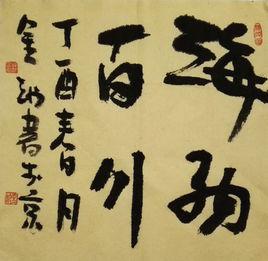 海纳
百川
丁酉春月
金书於京